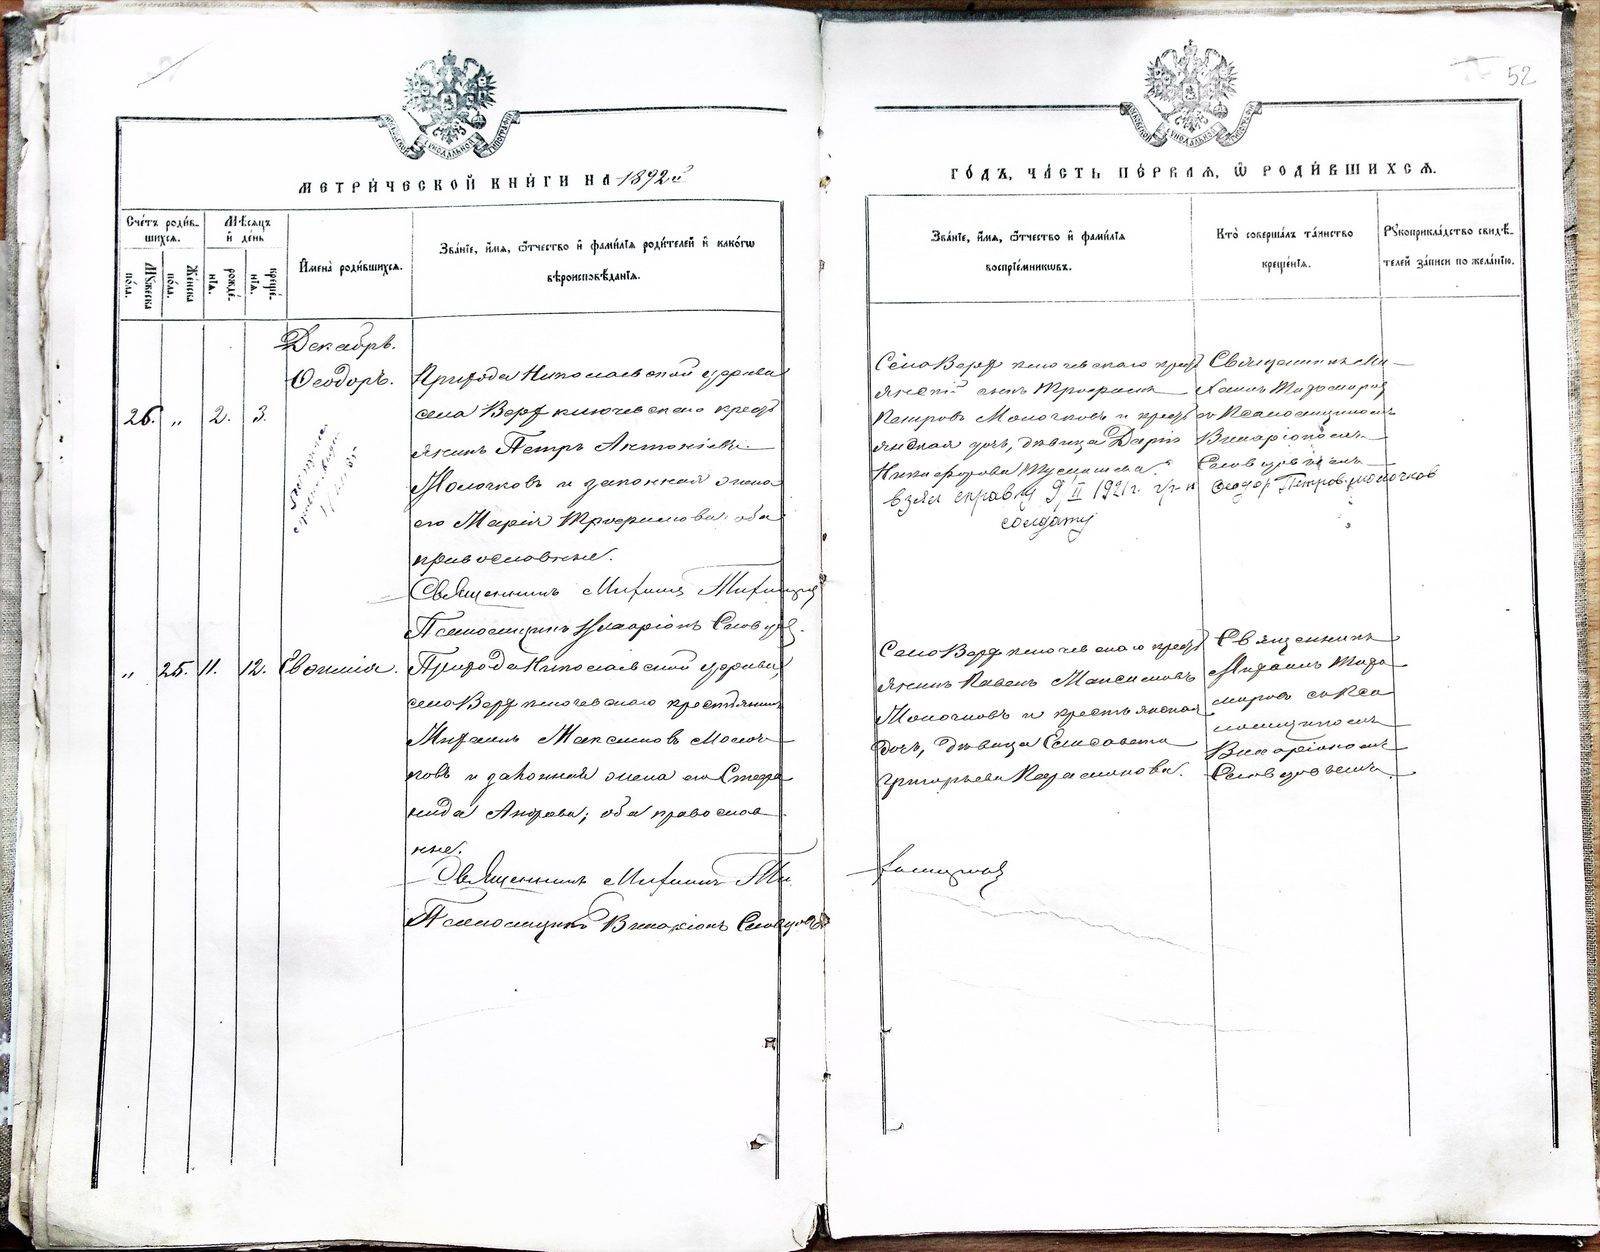 52
МЕТРИ́ЧЕСКОЙ КНИ́ГИ НА 1892й
ГО́ДЪ, ЧА́СТЬ ПЕ́РВАЯ, Ѡ РОДИ́ВШИХСЯ.
Сче́тъ роди́в-
шихся.
Му́жеска
по́ла.
Же́нска
по́ла.
Мѣ́сяцъ
и҆ де́нь
рожде́-
нїя.
креще́-
нїя.
И҆мена̀ роди́вшихся.
Зва́нїе, и҆́мя, ѻ҆́тчество и҆ фами́лїя роди́телей и҆ како́гѡ
вѣроисповѣ́данїя.
Зва́нїе, и҆́мя, ѻ҆́тчество и҆ фами́лїя
воспрїе́мникѡвъ.
Кто̀ соверша́лъ та́инство
креще́нїя.
Рꙋкоприкла́дство свидѣ́-
телей за́писи по жела́нїю.
Декабрь.
26. „ 2. 3.
Ѳеодоръ.
Прихода Николаевской церкви
села Верхключевского кресть
янинъ Петръ Антоніевъ
Молочковъ и законная жена
его Марія Трофимова; оба
православные.
Священникъ Михаилъ
Псаломщикъ Иларіонъ Словцовъ.
Села Верхключевского кресть
янскій сынъ Трофимъ
Петровъ Молочковъ и кресть
янская дочь, дѣвица Дарія
Никифорова
Взял справку 9/II 1921 г.
солдату
Священникъ Ми-
хаилъ
съ Псаломщикомъ
Иларіономъ
Словцовымъ
Феодор Петров. Молочков
„ 25. 11. 12. Евгенія.
Прихода Николаевской церкви,
села Верхключевского крестьянинъ
Михаилъ Максимовъ Молоч
ковъ и законная жена его Стефа
нида; оба православ
ные.
Священникъ Михаилъ
Псаломщикъ Иларіонъ Словцовъ
Села Верхключевского кресть
янинъ Павелъ Максимовъ
Молочковъ и крестьянская
дочь, дѣвица Елисавета
Григорьева
Священникъ
Михаилъ
съ Пса
ломщикомъ
Иларіономъ
Словцовымъ.